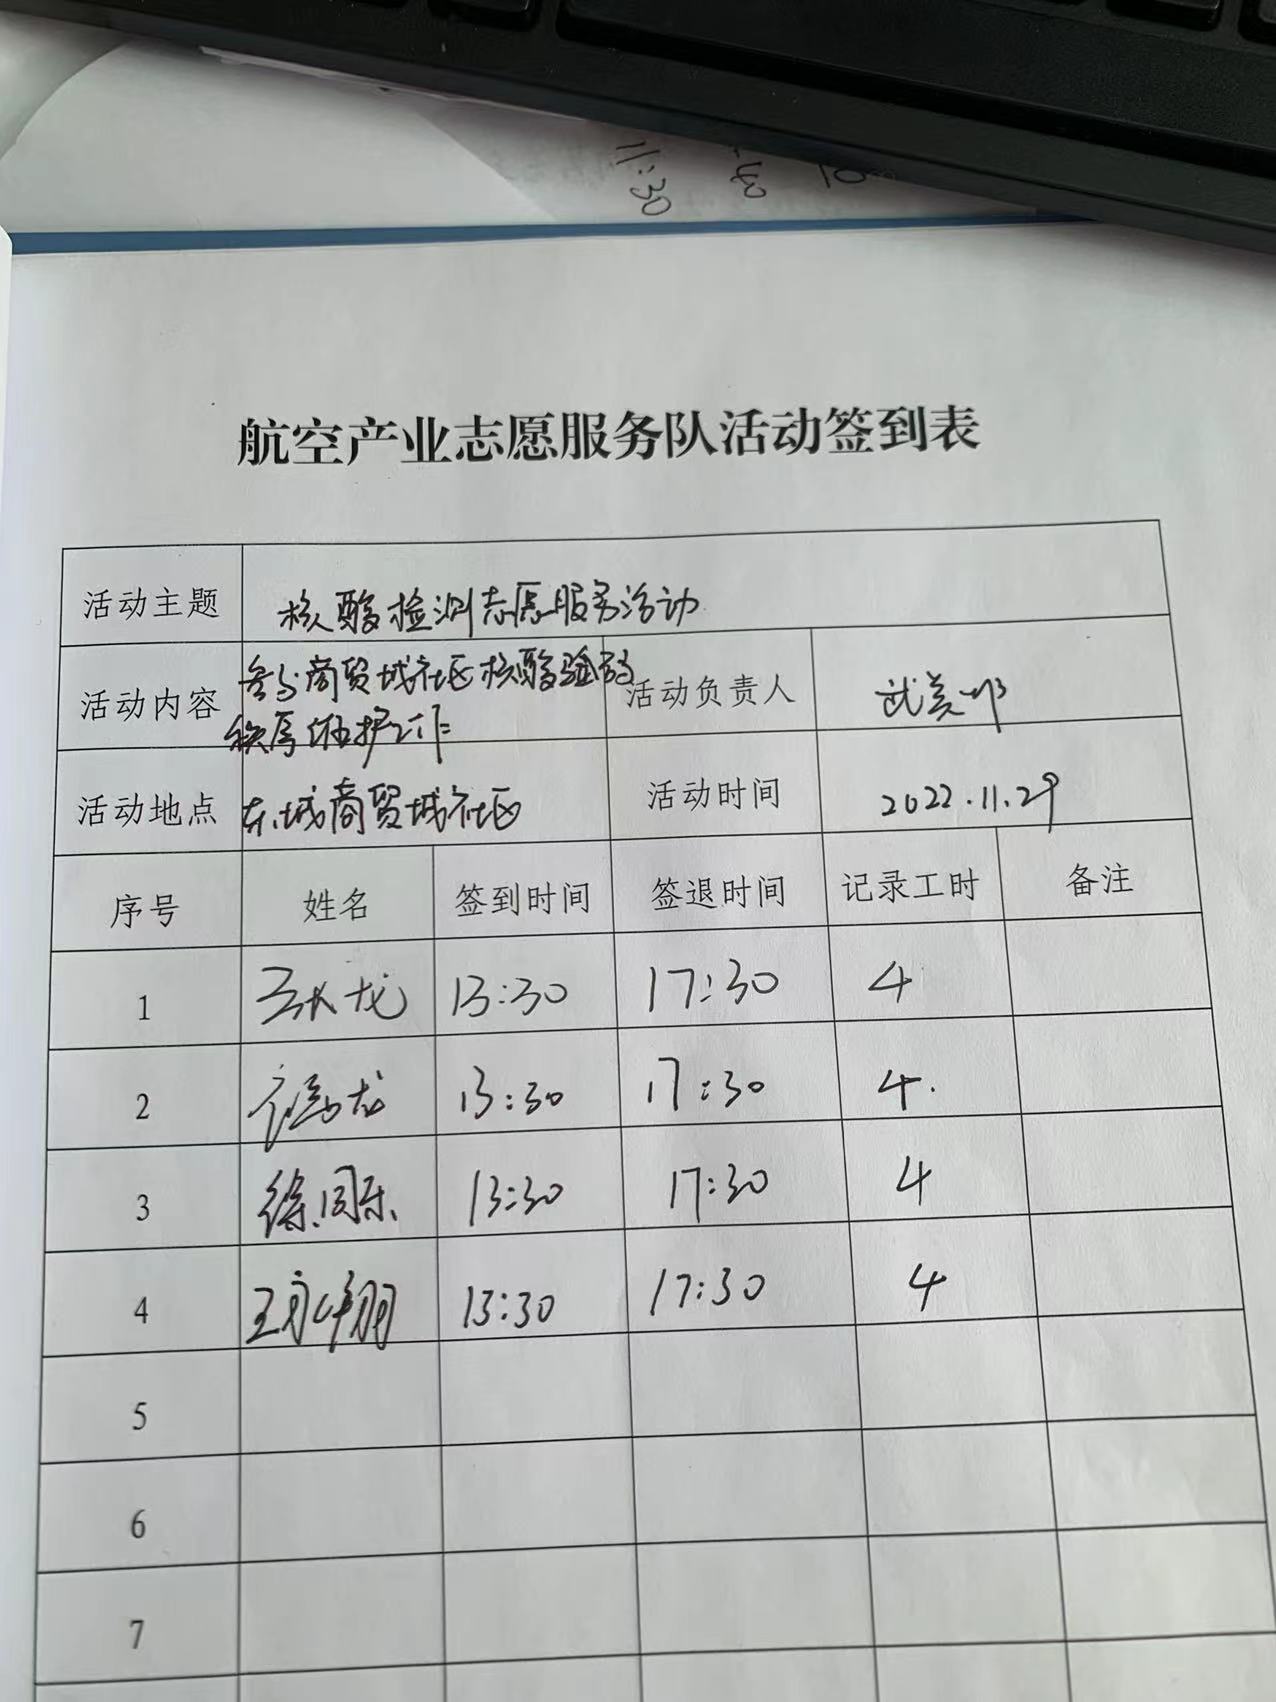 11:30
40
航空产业志愿服务队活动签到表
活动主题 核酸检测志愿服务活动
活动内容 参与商贸城社区核酸验码
秩序维护工作
活动负责人
活动地点 东城商贸城社区 活动时间 2022.11.29
序号 姓名 签到时间 签退时间 记录工时 备注
1 13:30 17:30 4
2 13:30 17:30 4.
3 徐同乐 13:30 17:30 4
4 13:30 17:30 4
5
6
7